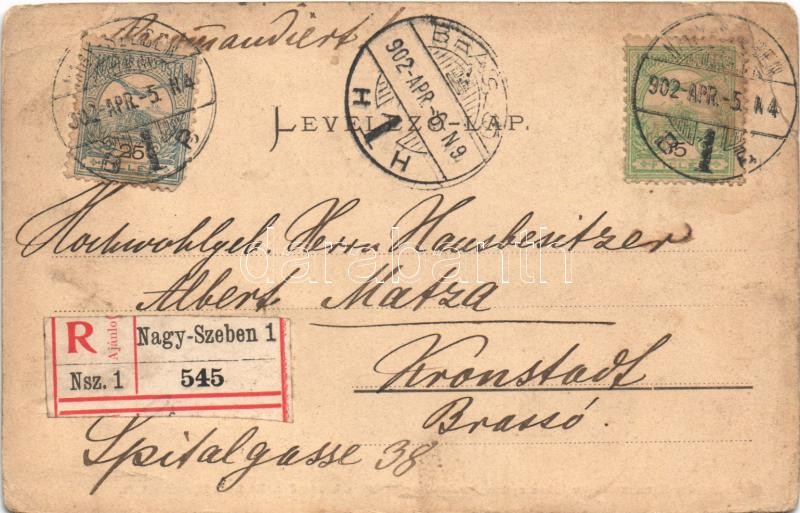 Recommandiert!
NAGYSZEBEN
902-APR.-5. N4
B 1 B
25
BRASSÓ
902-APR.-6. N9
H 1 H
902-APR.-5. N4
1
5
LEVELEZŐ-LAP.
Hochwohlgeb. Herrn Hausbesitzer
Albert Matza
Kronstadt
Brassó.
Spitalgasse 38
R Ajánlo Nagy-Szeben 1
Nsz. 1 545
darabanth